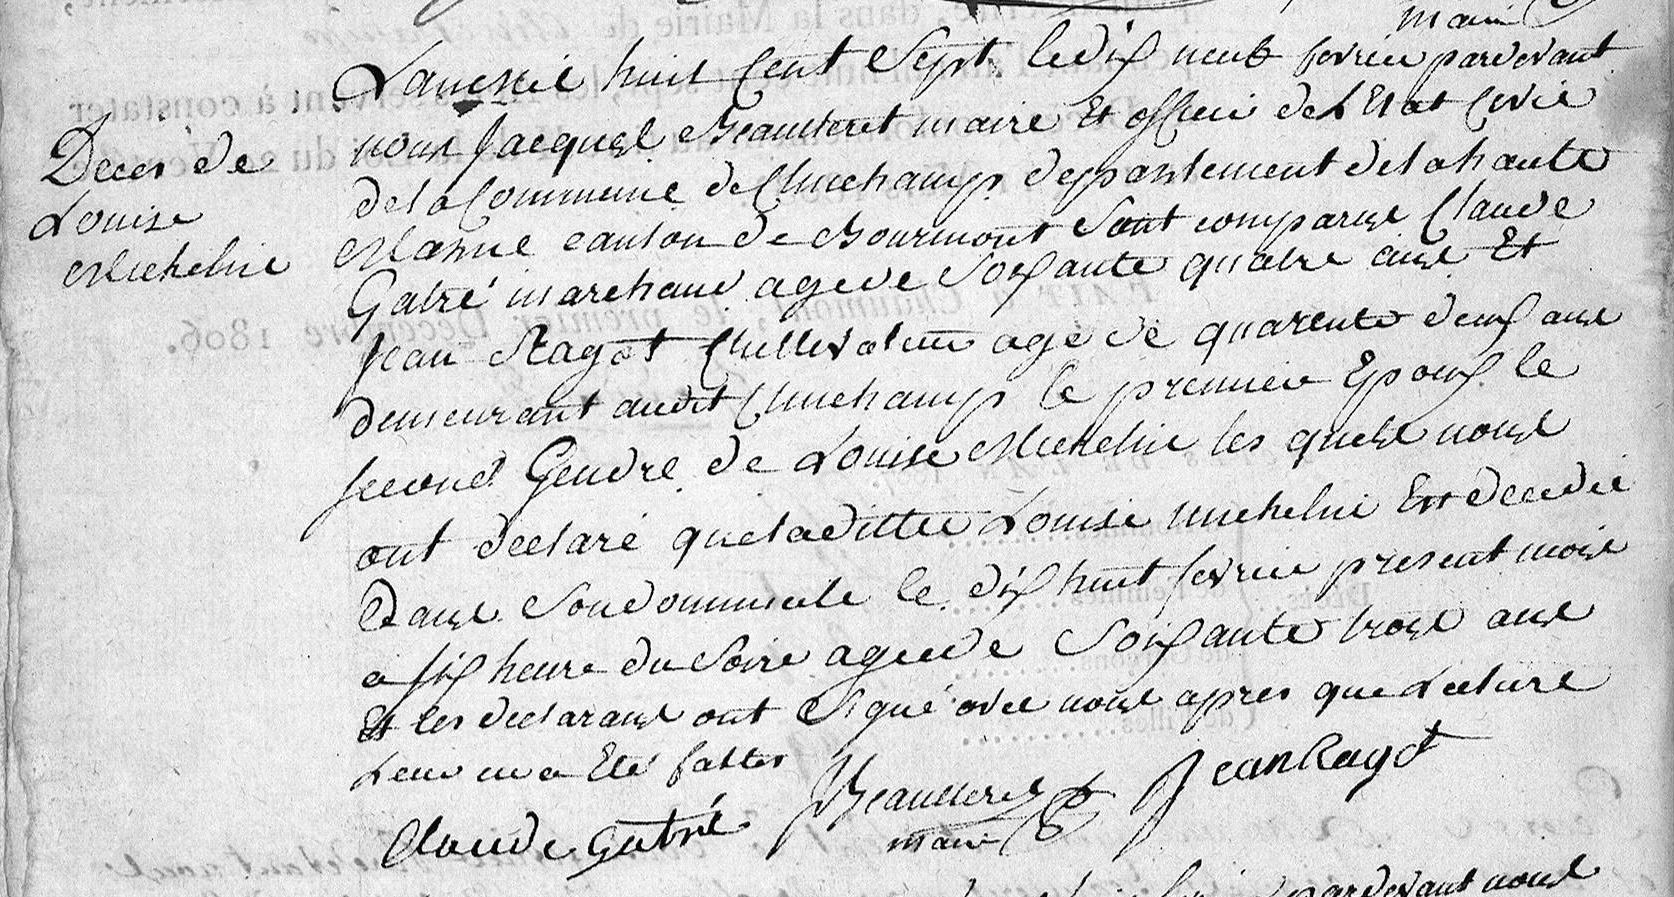 maire
Lan mil huit Cent Sept le dix neuf fevrier pardevant
Deces de
Louise
Michelin
nous Jacques Beaulteret maire Et officier de L Etat Civil
de la Commune de Clinchamp departement de la haute
Marne canton de Bourmont Sont comparus Claude
Gatré marchand age de Soixante quatre ans Et
Jean Ragot age de quarente deux ans
demeurant audit Clinchamp le premier Epoux le
second Gendre de Louise Michelin les quels nous
ont declaré que la ditte Louise michelin Est decedée
Dans Son domicile le dix huit fevrier present mois
a six heure du Soire agee de Soixante trois ans
Et les declarans ont Signé avec nous apres que Lecture
Leur en a Eté faitte
Claude Gatré Beaulteret maire Jean Ragot
pardevant nous